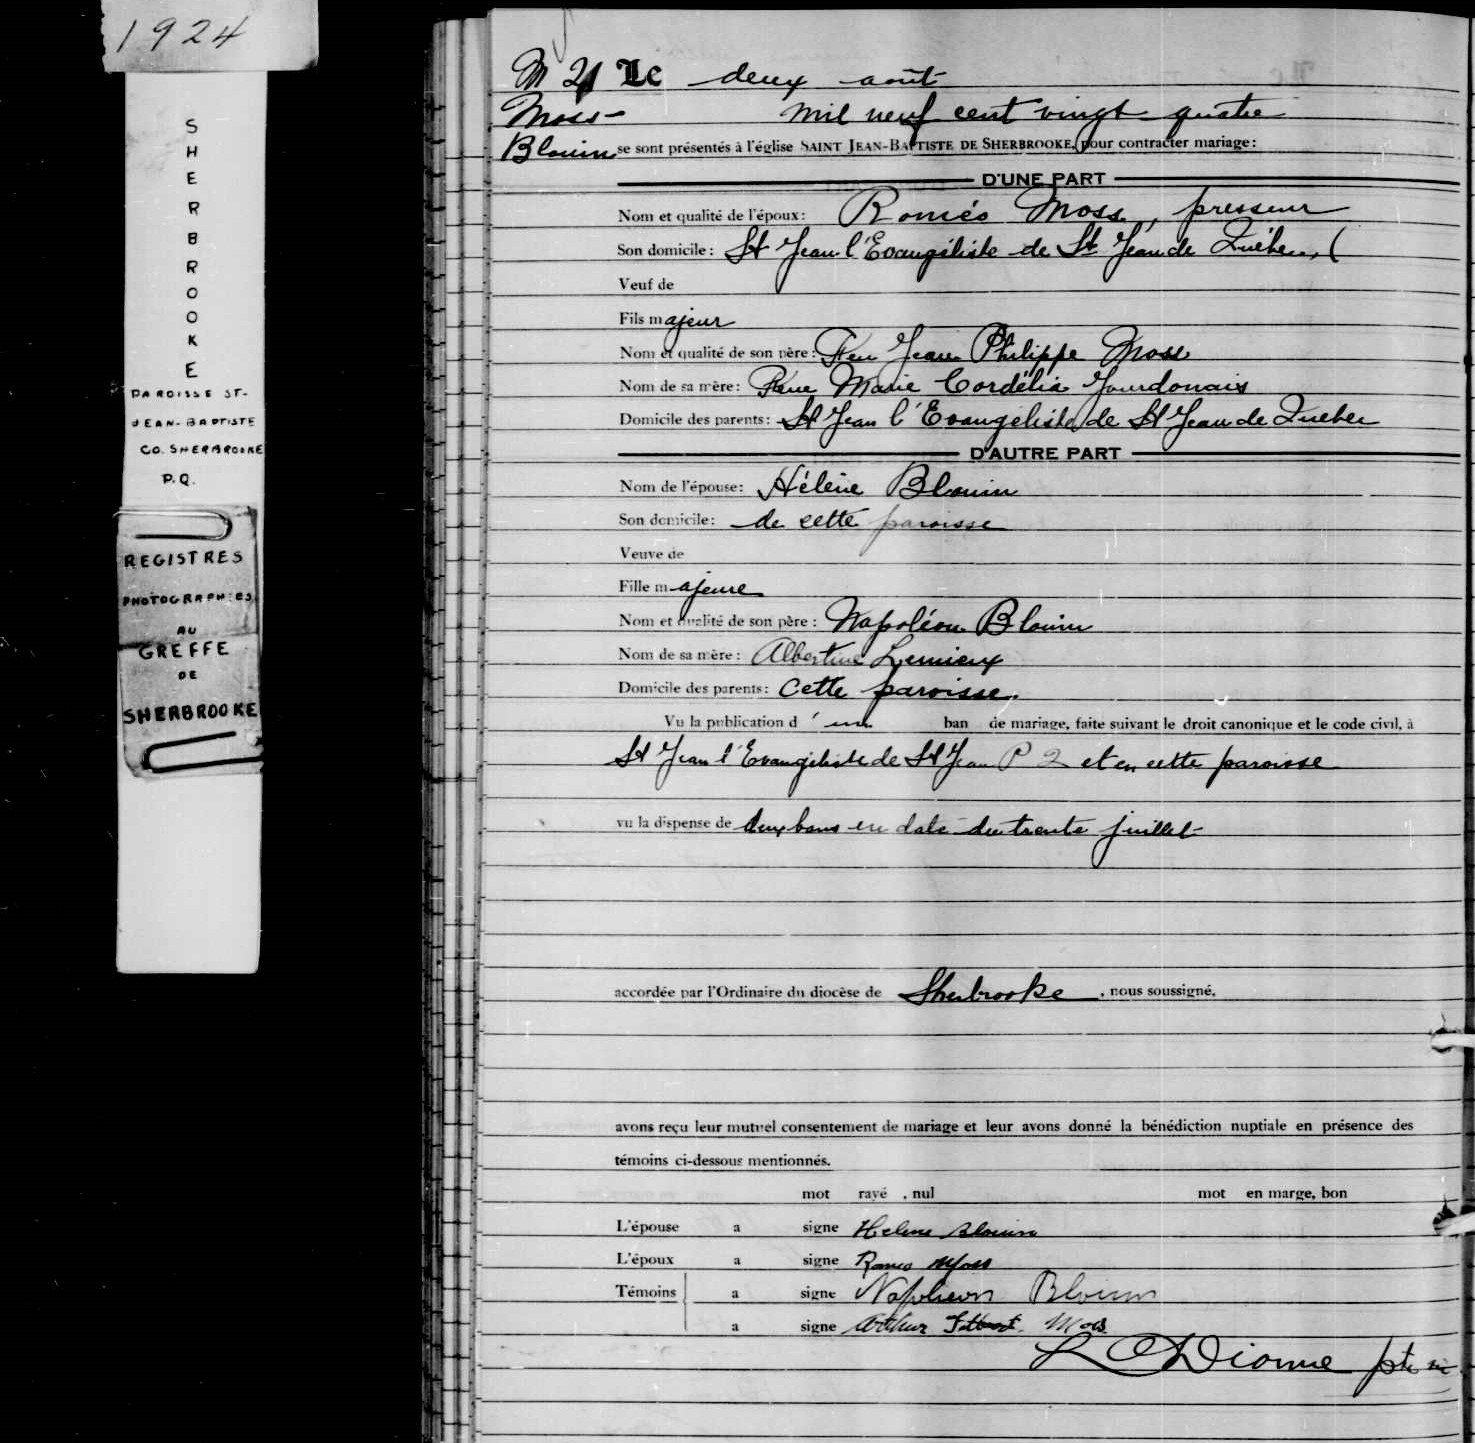 1924
SHERBROOKE
PAROISSE ST-
JEAN-BAPTISTE
CO. SHERBROOKE
P.Q.
REGISTRES
PHOTOGRAPHIES
AU
GREFFE
DE
SHERBROOKE
M 21 Le deux août
Moss- mil neuf cent vingt quatre
Blouin se sont présentés à l'église SAINT JEAN-BAPTISTE DE SHERBROOKE, pour contracter mariage:
D'UNE PART
Nom et qualité de l'époux: Roméo Moss, presseur
Son domicile: St Jean l'Evangéliste de St Jean de Québec, (
Veuf de
Fils majeur
Nom et qualité de son père: Feu Jean Philippe Moss
Nom de sa mère: Feue Marie Cordélia Jourdonais
Domicile des parents: St Jean l'Evangéliste de St Jean de Quebec
D'AUTRE PART
Nom de l'épouse: Hélène Blouin
Son domicile: de cette paroisse
Veuve de
Fille majeure
Nom et qualité de son père: Napoléon Blouin
Nom de sa mère: Albertine Lemieux
Domicile des parents: cette paroisse.
Vu la publication d'un ban de mariage, faite suivant le droit canonique et le code civil, à
St Jean l'Evangéliste de St Jean P Q et en cette paroisse
vu la dispense de deux bans en date du trente juillet
accordée par l'Ordinaire du diocèse de Sherbrooke, nous soussigné,
avons reçu leur mutuel consentement de mariage et leur avons donné la bénédiction nuptiale en présence des
témoins ci-dessous mentionnés.
mot rayé, nul mot en marge, bon
L'épouse a signe Helene Blouin
L'époux a signe Romeo Moss
Témoins a signe Napoleon Blouin
a signe Arthur Moss
L C Dionne ptre